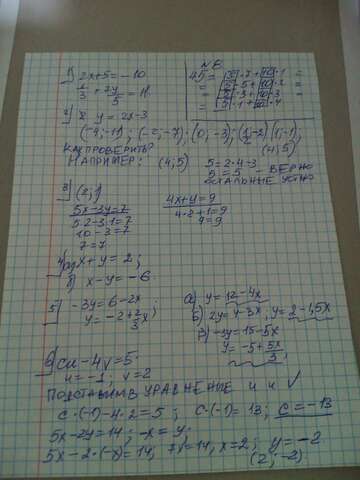 1) 2x+5=-10
x/3 + 7y/5 = 11
2) y = 2x-3
(-4;-11); (-2;-7), (0;-3); (1;-2) (1;-1),
(4;5)
КАК ПРОВЕРИТЬ?
НАПРИМЕР: (4;5) 5=2·4-3
5=5 - ВЕРНО
ОСТАЛЬНЫЕ УСТНО
N8
45 = 5·7+10·1 =
= 5·5+10·2 =
= 5·3+10·3 =
= 5·1+10·4
3) (2;1)
5x-3y=7
5·2-3·1=7
10-3=7
7=7
4x+y=9
4·2+1=9
9=9
4) a) x+y=2;
б) x-y=-6
5) -3y=6-2x
y=-2+2/3x;
а) y=12-4x
б) 2y=4-3x; y=2-1,5x
в) -3y=15-5x
y=-5+5x/3;
6) cu-4v=5
u=-1, v=2
ПОДСТАВИМ В УРАВНЕНИЕ u и v
c·(-1)-4·2=5; c·(-1)=13; c=-13
5x-2y=14; -x=y;
5x-2·(-x)=14; 7x=14, x=2; y=-2
(2;-2)